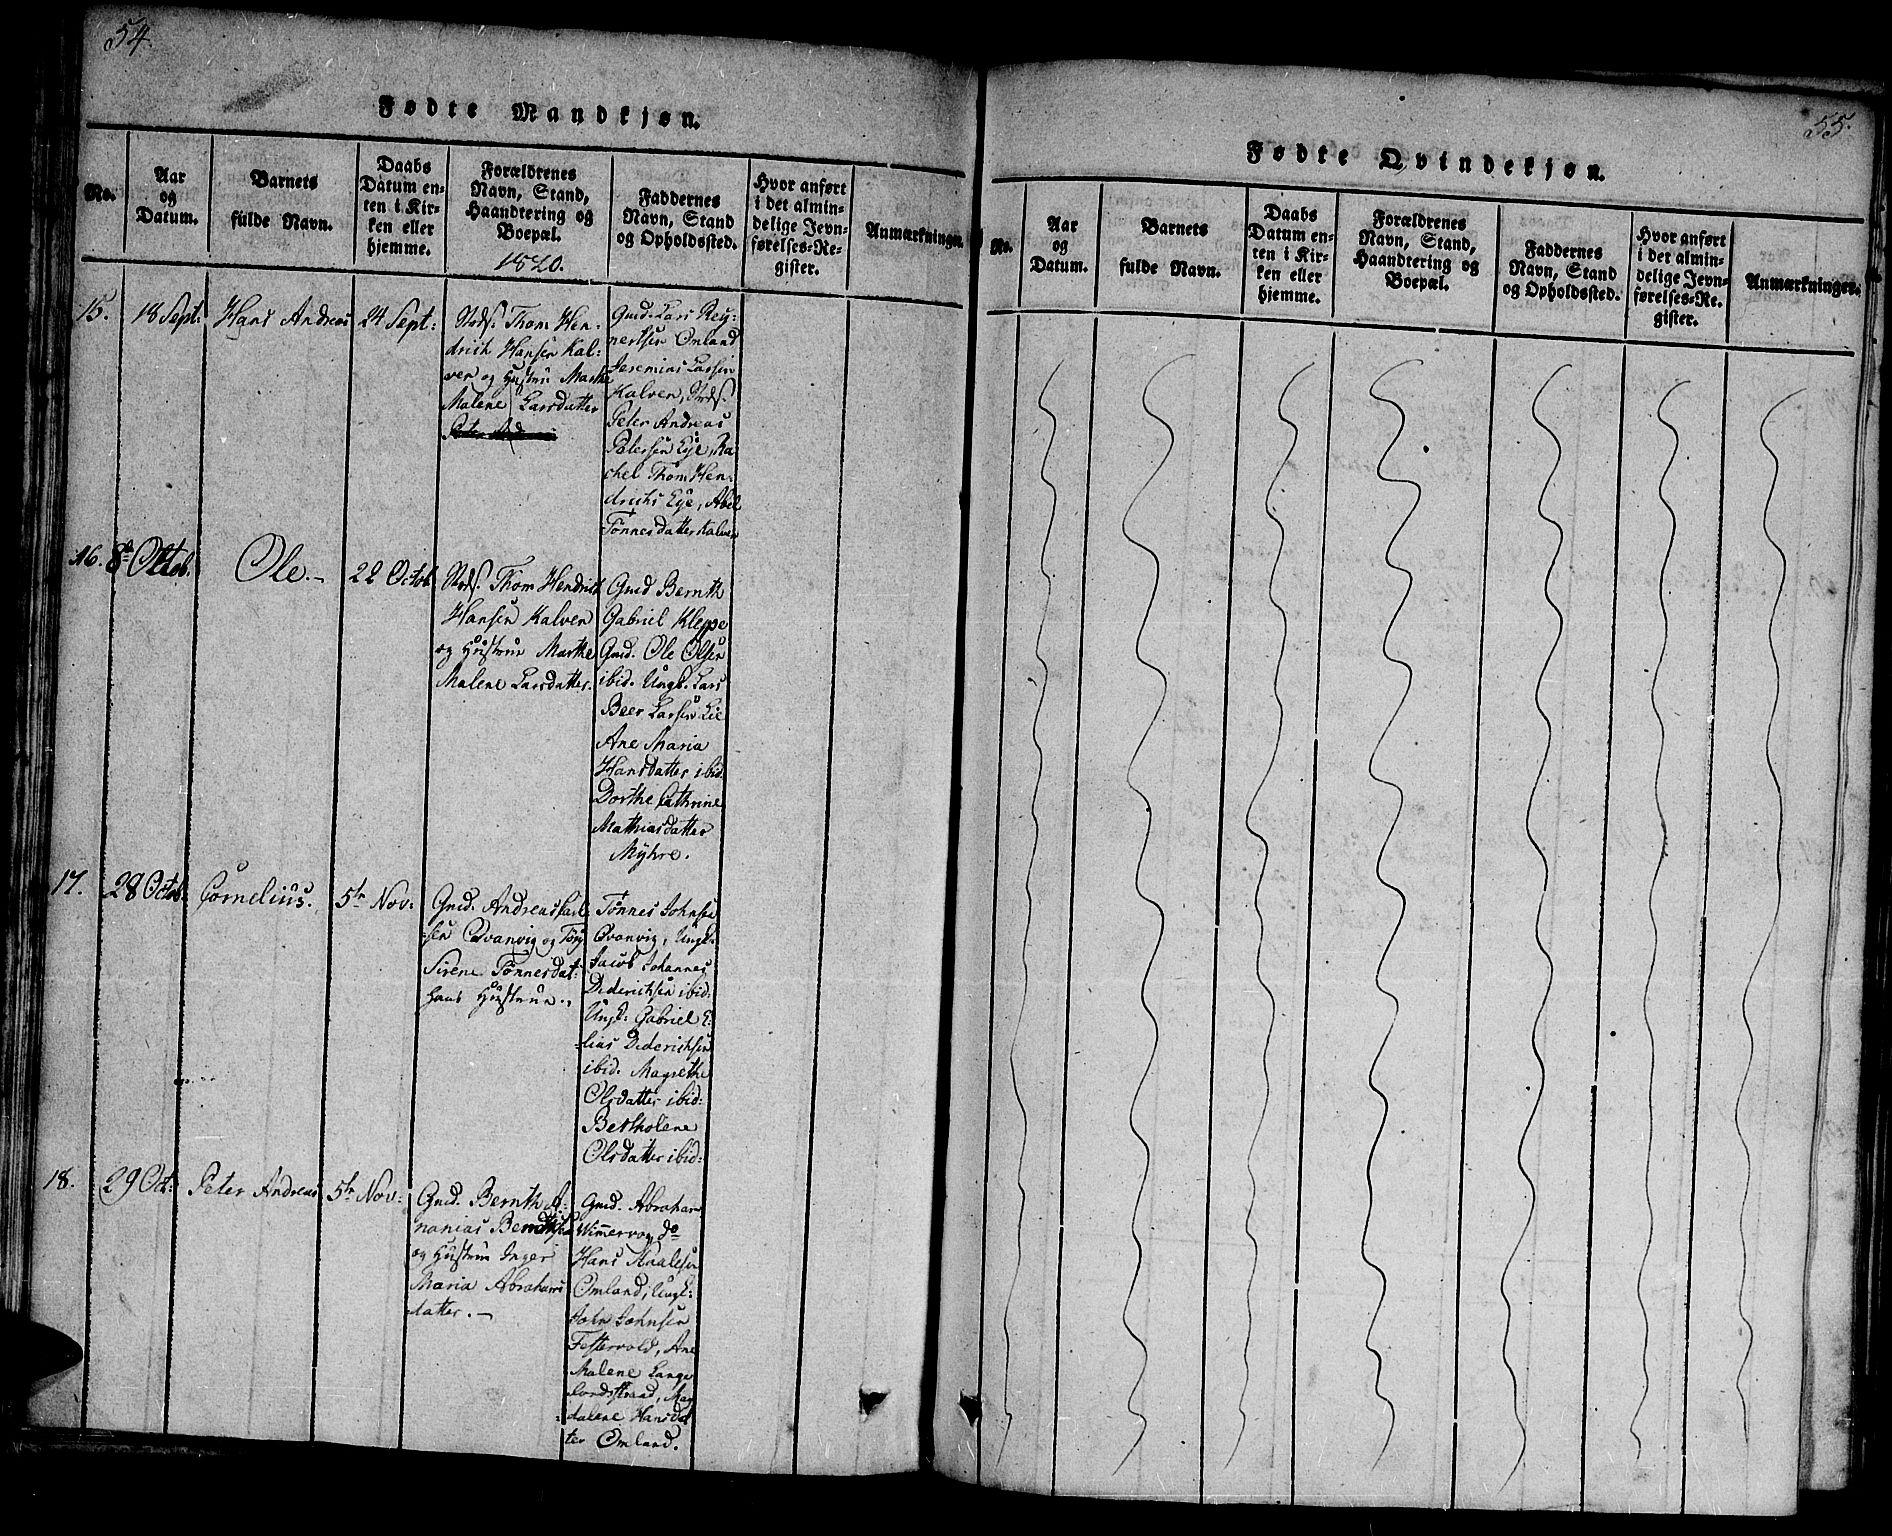 54.
Fødte Mandkjøn.
No.
Aar
og
Datum.
Barnets
fulde Navn.
Daabs
Datum en-
ten i Kir-
ken eller
hjemme.
Forældrenes
Navn, Stand,
Haandtering og
Boepæl.
1820.
Faddernes
Navn, Stand
og Opholdssted.
Hvor anført
i det almin-
delige Jevn-
førelses-Re-
gister.
Anmærkninger.
15.
18 Sept:
Hans Andreas
24 Sept:
Thom Hen-
drich Hansen Kal-
ven og Hustrue Marthe
Malene Larsdatter
Gmd. Lars Rey-
nertsen Omland
Jeremias Larsen
Kalven,
Peter Andreas
Petersen Eye, Ra
chel Thom Hen-
drichs Eye, Abel
Tønnesdatter Kalven
16.
8de Octob.
Ole. -
22 Octob
Thom Hendrich
Hansen Kalven
og Hustrue Marthe
Malene Larsdatter.
Gmd Bernth
Gabriel Kleppe
Gmd. Ole Olsen
ibid. Ungk. Lars
Beer Larsen Lie
Ane Maria
Hansdatter ibid.
Dorthe Cathrine
Mathiasdatter
Myhre.
17.
28 Octob:
Cornelius.
5te Nov:
Gmd. Andreas Carl-
sen Qvanvig og
Sirene Tønnesdat:
hans Hustrue.
Tønnes Johnsen
Qvanvig, Ungk:
Jacob Johannes
Diderichsen ibid:
Ungk: Gabriel E-
lias Diderichsen
ibid. Magrethe
Olsdatter ibid:
Bertholene
Olsdatter ibid:
18.
29 Oct:
Peter Andreas
5te Nov:
Gmd. Bernth A-
nanias Bernthsen
og Hustrue Inger
Maria Abrahams
datter. -
Gmd. Abraham
do
Hans Aanalesen
Omland, Ungk:
John Johnsen
Festervold, Ane
Malene Lange
Mag
dalene Hansdat
ter Omland.
55.
Fødte Qvindekjøn.
No.
Aar
og
Datum.
Barnets
fulde Navn.
Daabs
Datum en-
ten i Kir-
ken eller
hjemme.
Forældrenes
Navn, Stand,
Haandtering og
Boepæl.
Faddernes
Navn, Stand
og Opholdssted.
Hvor anført
i det almin-
delige Jevn-
førelses-Re-
gister.
Anmærkninger.